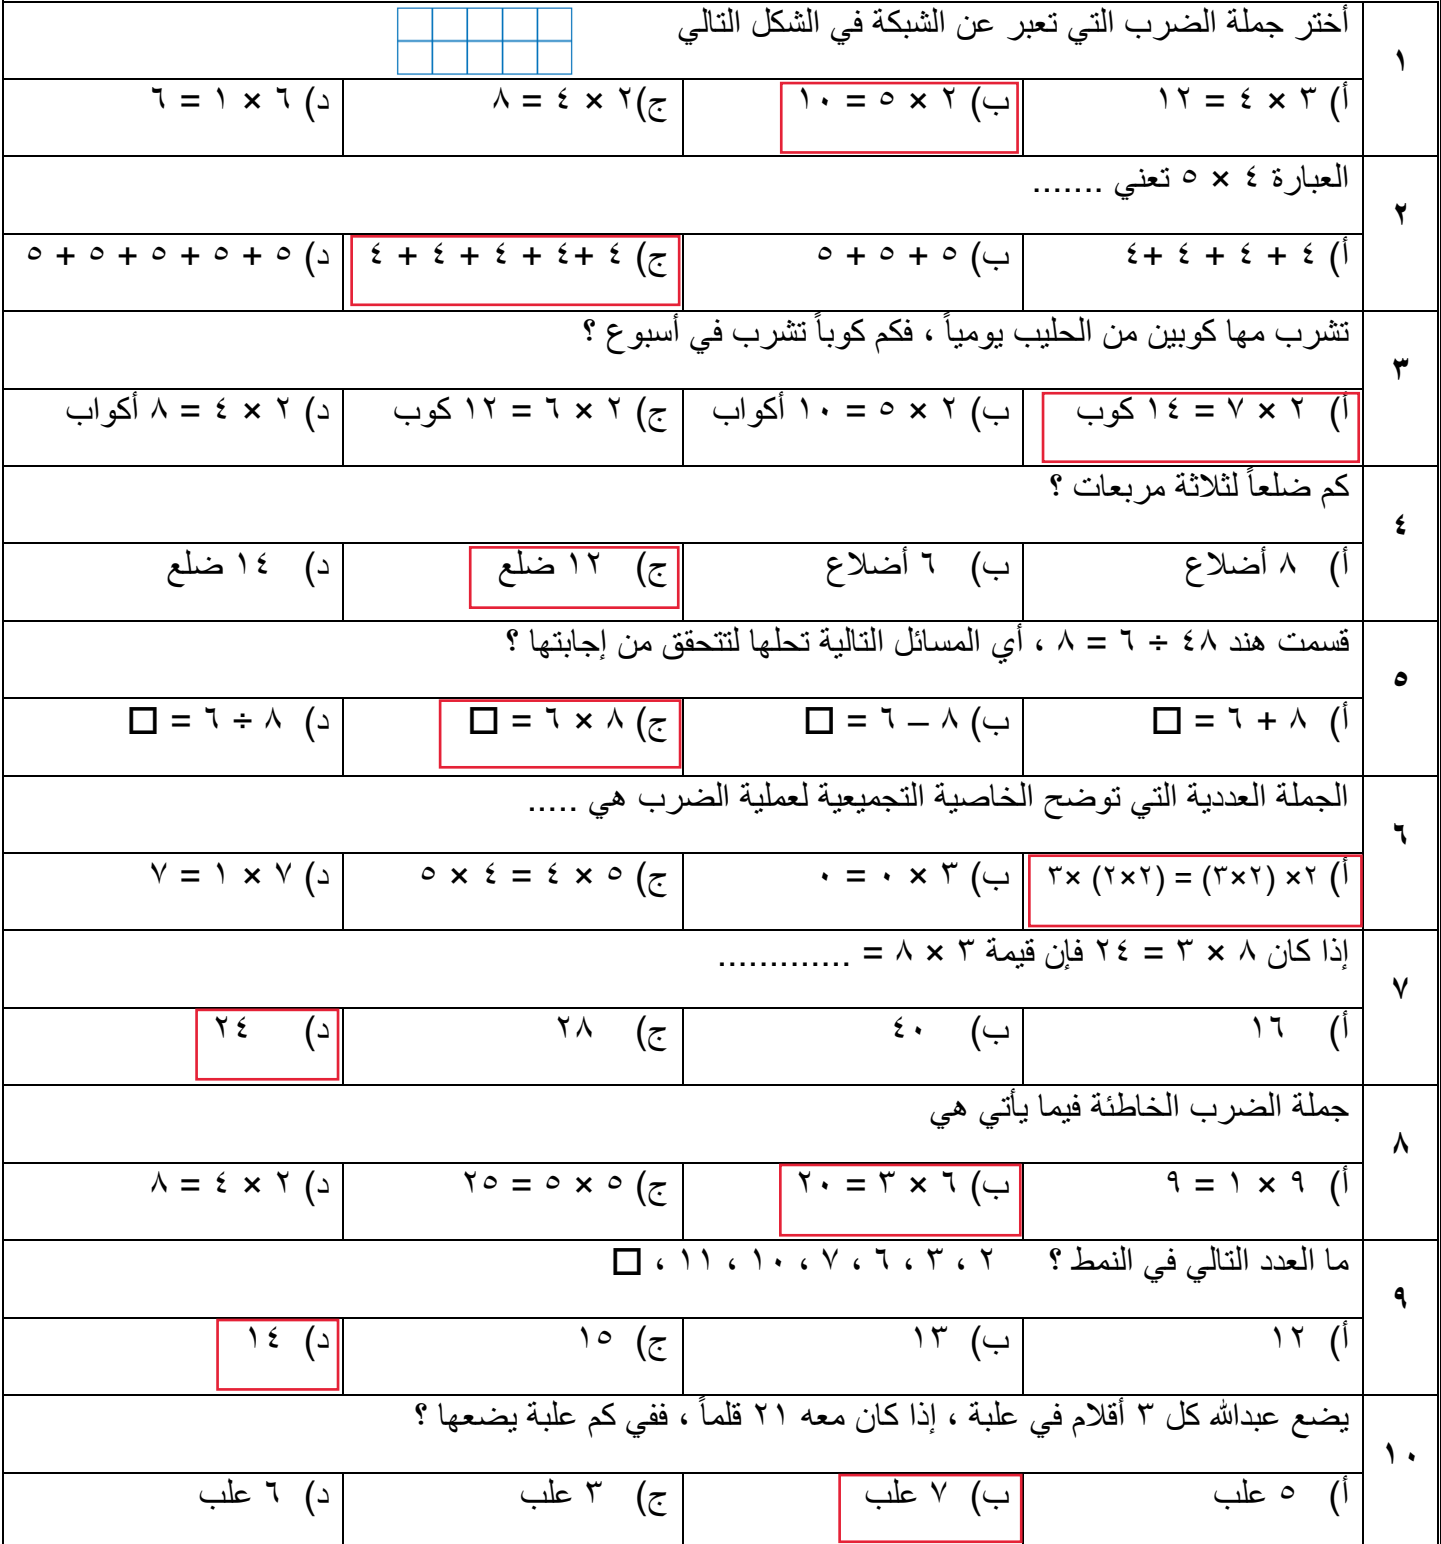 ١
أختر جملة الضرب التي تعبر عن الشبكة في الشكل التالي
أ) ٣ × ٤ = ١٢
ب) ٢ × ٥ = ١٠
ج)٢ × ٤ = ٨
د) ٦ × ١ = ٦
٢
العبارة ٤ × ٥ تعني .......
أ) ٤ + ٤ + ٤ +٤
ب) ٥ + ٥ + ٥
ج) ٤ +٤ + ٤ + ٤ + ٤
د) ٥ + ٥ + ٥ + ٥ + ٥
٣
تشرب مها كوبين من الحليب يومياً ، فكم كوباً تشرب في أسبوع ؟
أ) ٢ × ٧ = ١٤ كوب
ب) ٢ × ٥ = ١٠ أكواب
ج) ٢ × ٦ = ١٢ كوب
د) ٢ × ٤ = ٨ أكواب
٤
كم ضلعاً لثلاثة مربعات ؟
أ) ٨ أضلاع
ب) ٦ أضلاع
ج) ١٢ ضلع
د) ١٤ ضلع
٥
قسمت هند ٤٨ ÷ ٦ = ٨ ، أي المسائل التالية تحلها لتتحقق من إجابتها ؟
أ) ٨ + ٦ = □
ب) ٨ – ٦ = □
ج) ٨ × ٦ = □
د) ٨ ÷ ٦ = □
٦
الجملة العددية التي توضح الخاصية التجميعية لعملية الضرب هي .....
أ) ٢× (٢×٣) = (٢×٢) ×٣
ب) ٣ × ٠ = ٠
ج) ٥ × ٤ = ٤ × ٥
د) ٧ × ١ = ٧
٧
إذا كان ٨ × ٣ = ٢٤ فإن قيمة ٣ × ٨ = .............
أ) ١٦
ب) ٤٠
ج) ٢٨
د) ٢٤
٨
جملة الضرب الخاطئة فيما يأتي هي
أ) ٩ × ١ = ٩
ب) ٦ × ٣ = ٢٠
ج) ٥ × ٥ = ٢٥
د) ٢ × ٤ = ٨
٩
ما العدد التالي في النمط ؟ ٢ ، ٣ ، ٦ ، ٧ ، ١٠ ، ١١ ، □
أ) ١٢
ب) ١٣
ج) ١٥
د) ١٤
١٠
يضع عبدالله كل ٣ أقلام في علبة ، إذا كان معه ٢١ قلماً ، ففي كم علبة يضعها ؟
أ) ٥ علب
ب) ٧ علب
ج) ٣ علب
د) ٦ علب